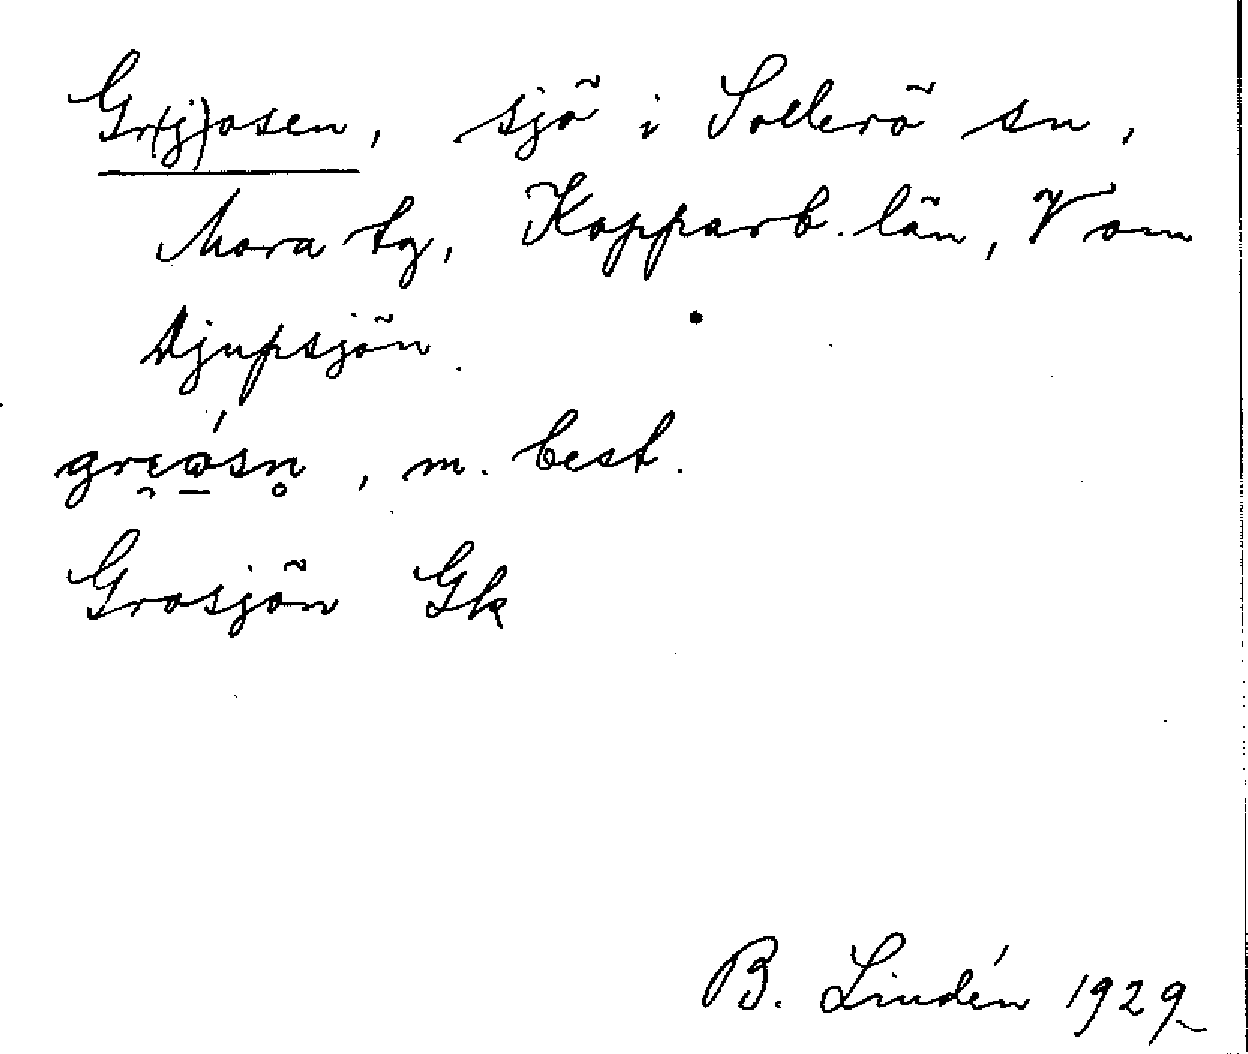 Gr(j)osen, sjö i Sollerö sn,
Mora tg, Kopparb. län, V om
Djupsjön.
grı̯ɷ̱́sn̥, m. best.
Grosjön Gk
B. Lindén 1929